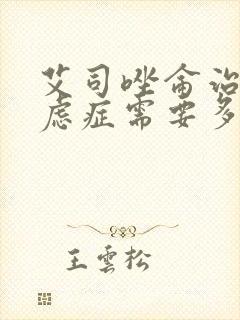 艾司唑仑治
虑症需要多
王云松